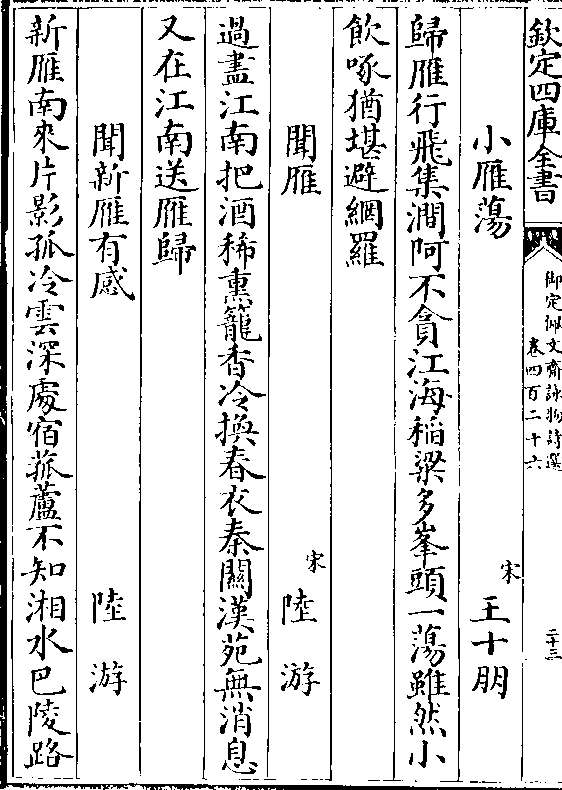 欽定四庫全書
御定佩文齋詠物詩選
卷四百二十六
二十三
小雁蕩
宋
王十朋
歸雁行飛集澗阿不貪江海稻粱多峯頭一蕩雖然小
飲啄猶堪避網羅
聞雁
宋
陸游
過盡江南把酒稀熏籠香冷換春衣秦關漢苑無消息
又在江南送雁歸
聞新雁有感
陸游
新雁南來片影孤冷雲深處宿菰蘆不知湘水巴陵路